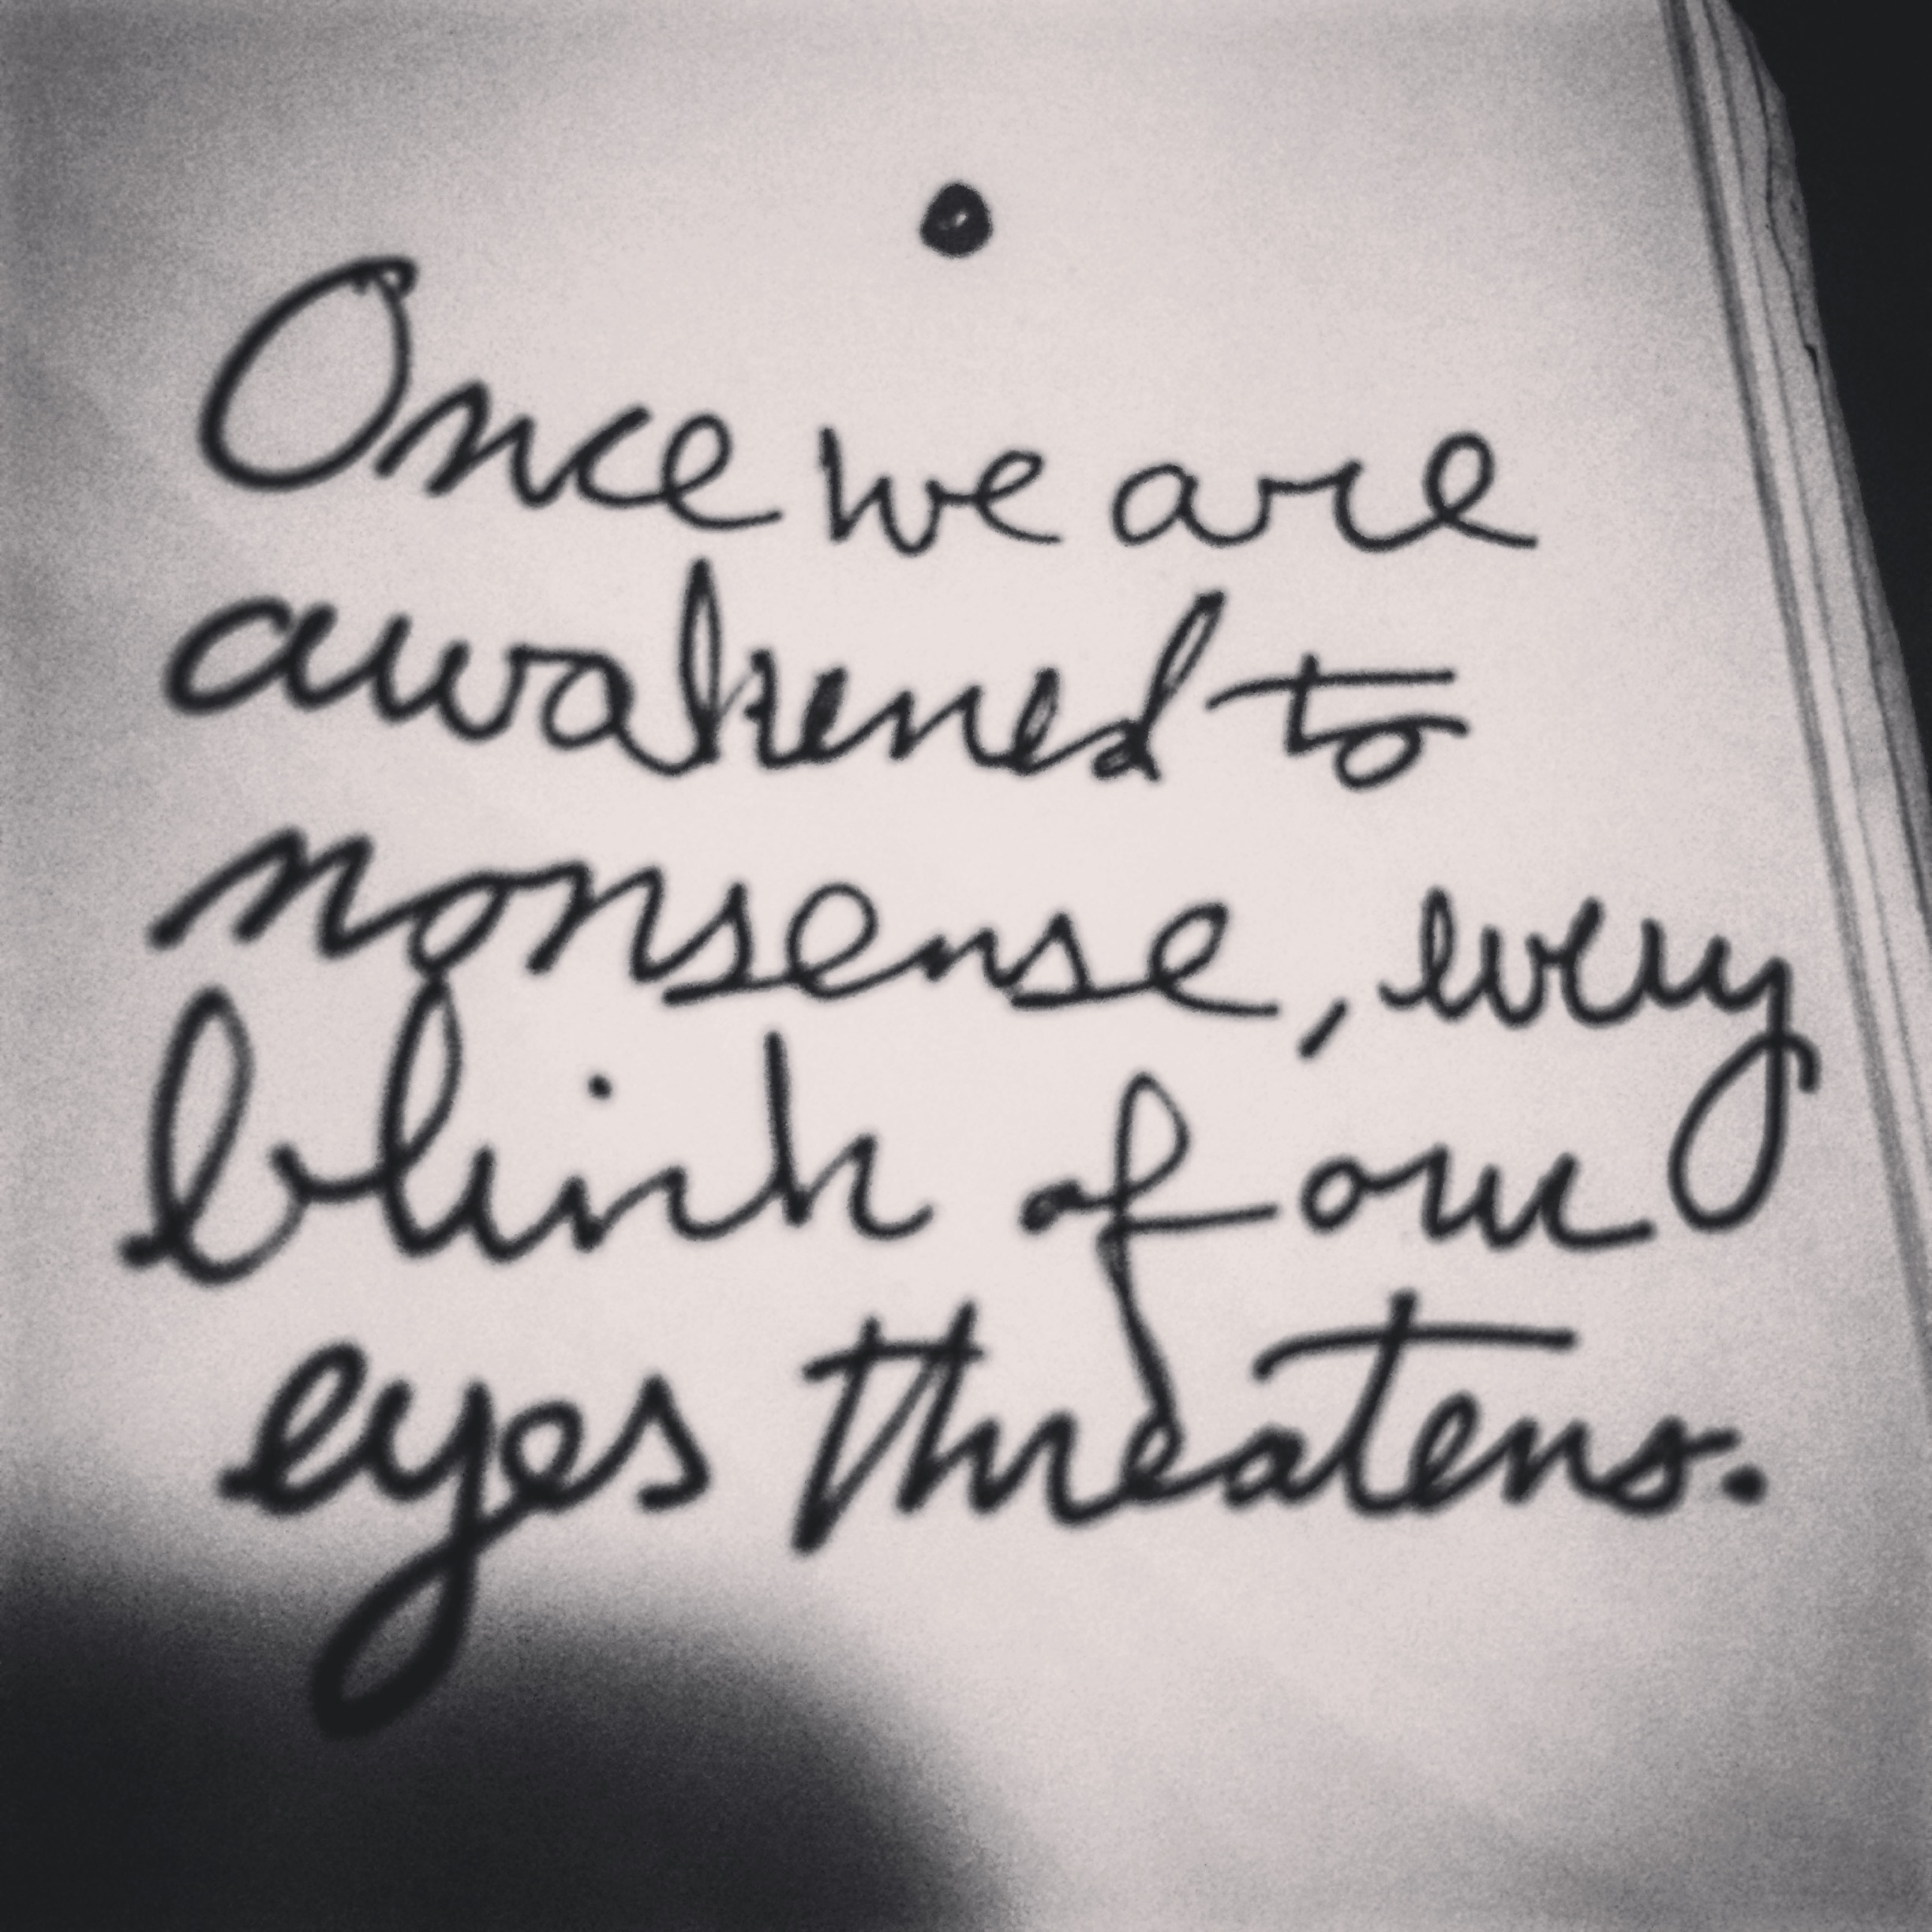 Once we are
awakened to
nonsense, every
blink of our
eyes threatens.